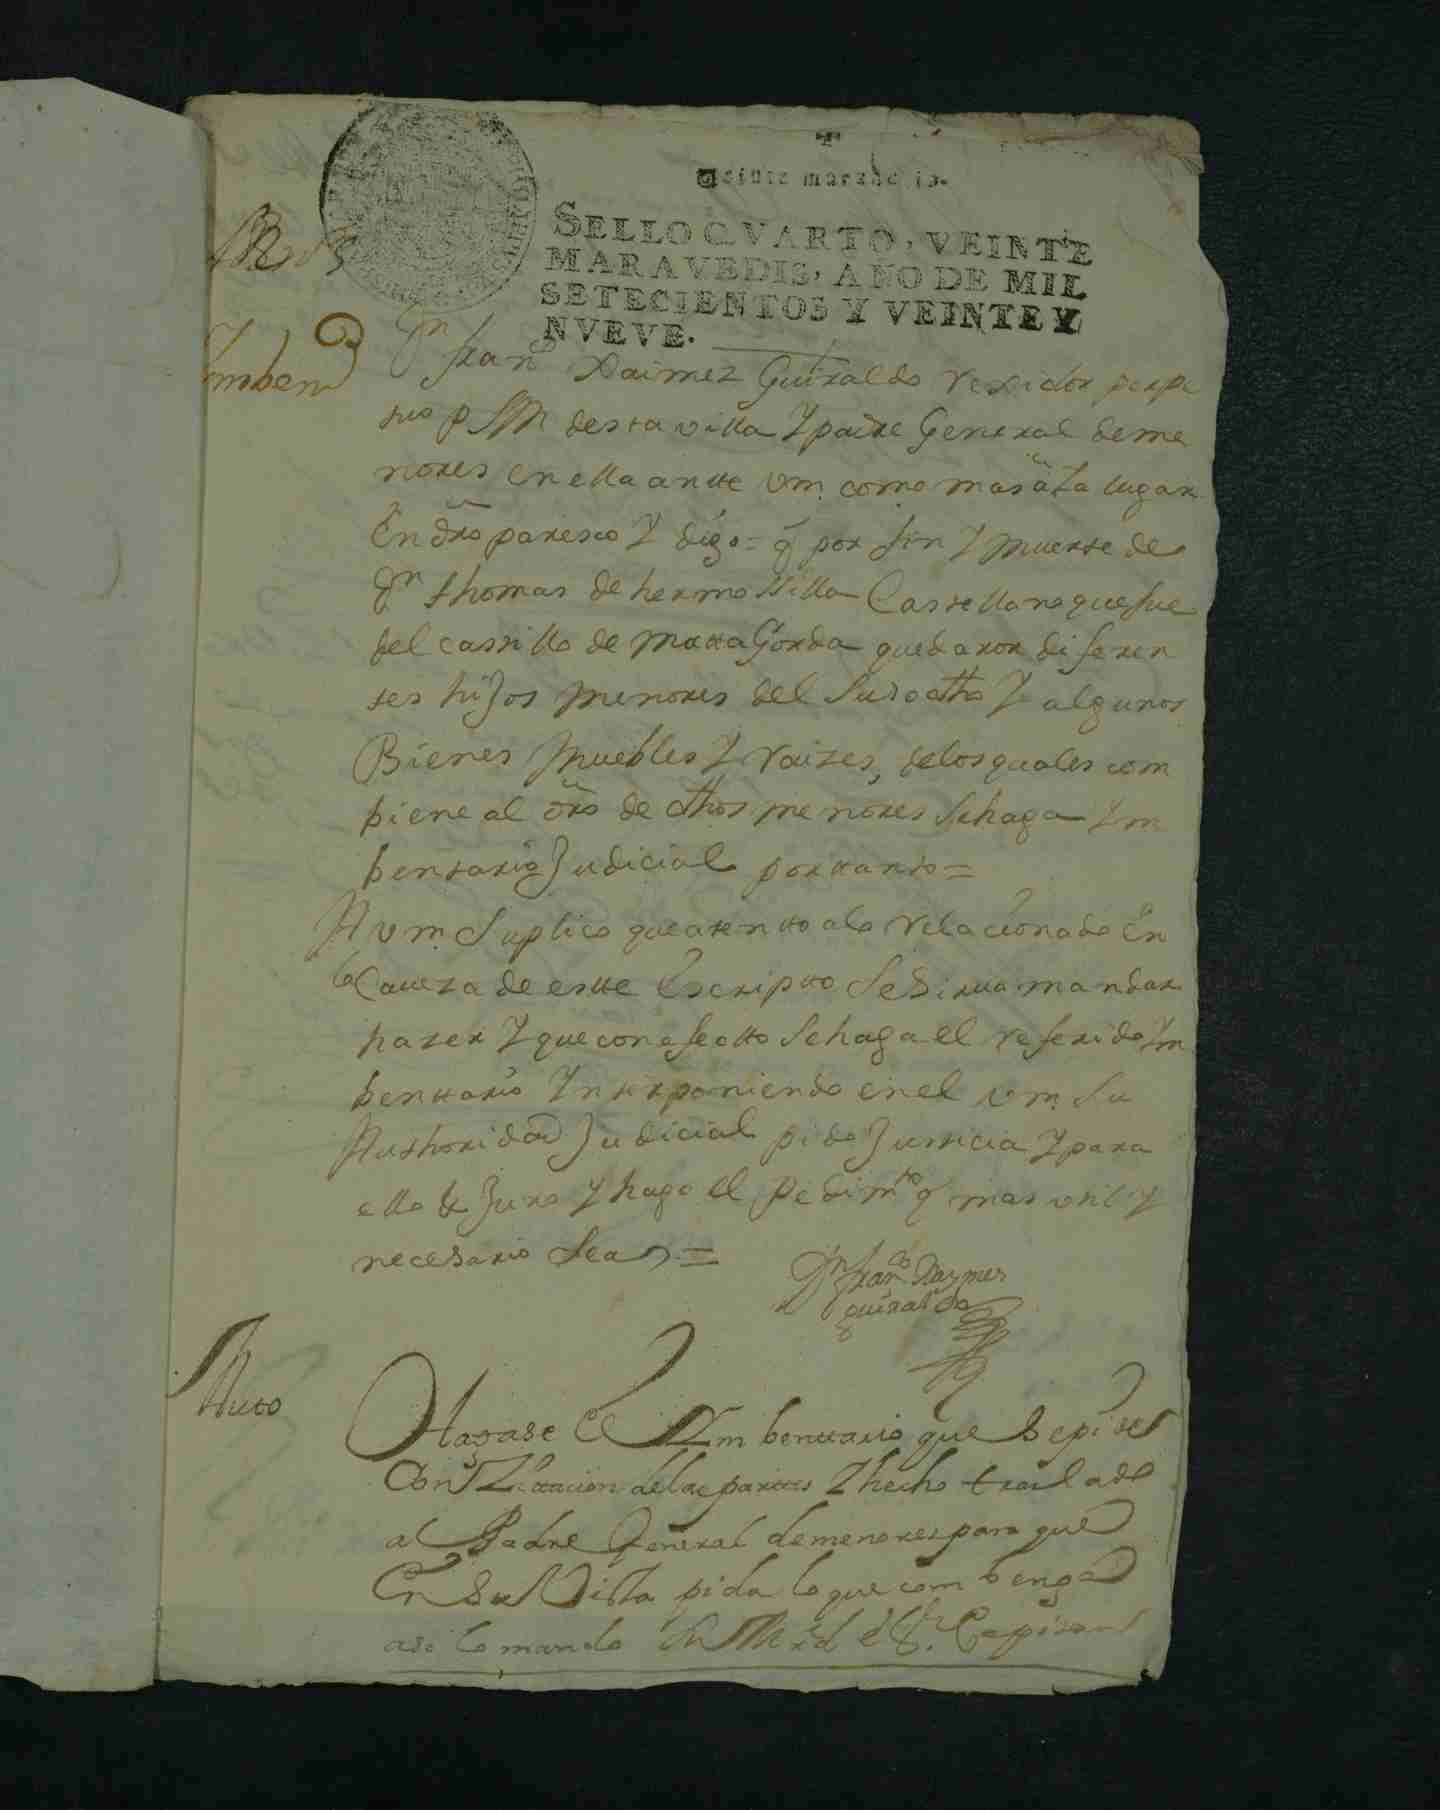 Veinte maravedis.
SELLO CVARTO, VEINTE
MARAVEDIS, AÑO DE MIL
SETECIENTOS Y VEINTE Y
NVEVE.
Ymben
Dn Franco Xaimez Guiraldo rexidor perpe
tuo p SM desta villa Y padre General deme
nores en ella antte Vm. como mas aia lugar
En dro paresco Y digo = q por fin Y muerte de
Dn thomas de hermosilla Castellano que fue
del castillo de Matta Gorda quedaron diferen
tes hijos menores del Susodho Y algunos
Bienes Muebles Y raizes, de los quales com
biene al dro de dhos menores Sehaga Ym
bentario Judicial porttanto =
A Vm. Suplico que atentto alo relacionado En
la Caveza de estte Escriptto Se Sirva mandar
hazer Y que con efectto Sehaga el referido Ym
benttario Ynterponiendo en el Vm. Su
Authoridad Judicial pido Justicia Y para
ello & Juro Y hago el pedimto q mas util Y
necesario Sea =
Dn Franco Xaymes
guiraldo
Autto
Hagase el Ymbenttario que Se pide
Con Zitacion delas partes Y hecho traslado
al Padre General de menores para que
En Su Vista pida lo que combenga
asi lo mando Su Mrd el Sr. Capitan